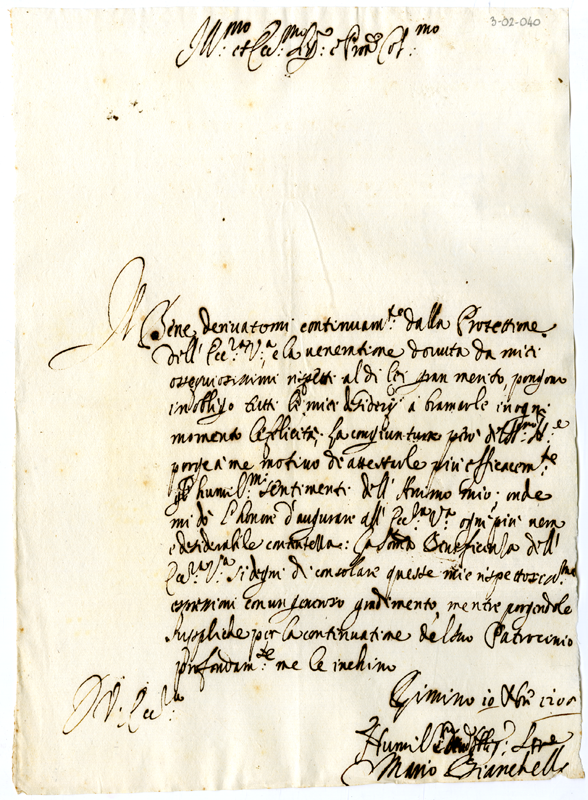 3-02-040
Ill.mo et Ecc.mo Sig.re e Pron Col.mo
Il Bene derivatomi continuam.te dalla Protettione
dell' Ecc.za V.a e la veneratione dovuta da miei
ossequiosissimi rispetti al di lei gran merito, pongono
in obligo tutti li miei desiderij a bramarle in ogni
momento le felicità; la congiuntura però del
porge à me motivo di attestarle più efficacem.te
gl' humil.mi sentimenti dell' Animo mio; onde
mi dò l'honore d'augurare all' Ecc.za V.a ogni più vera
e desiderabile contentezza: la somma Beneficenza dell'
Ecc.za V.a si degni di consolare queste mie rispettosiss.me
espressioni con un generoso gradimento, mentre porgendole
suppliche per la continuatione del suo Patrocinio
profondam.te me le inchino
D V: Ecc.za
Gimino 10 Xbri 1705
Humil.
Mario Bianchelli